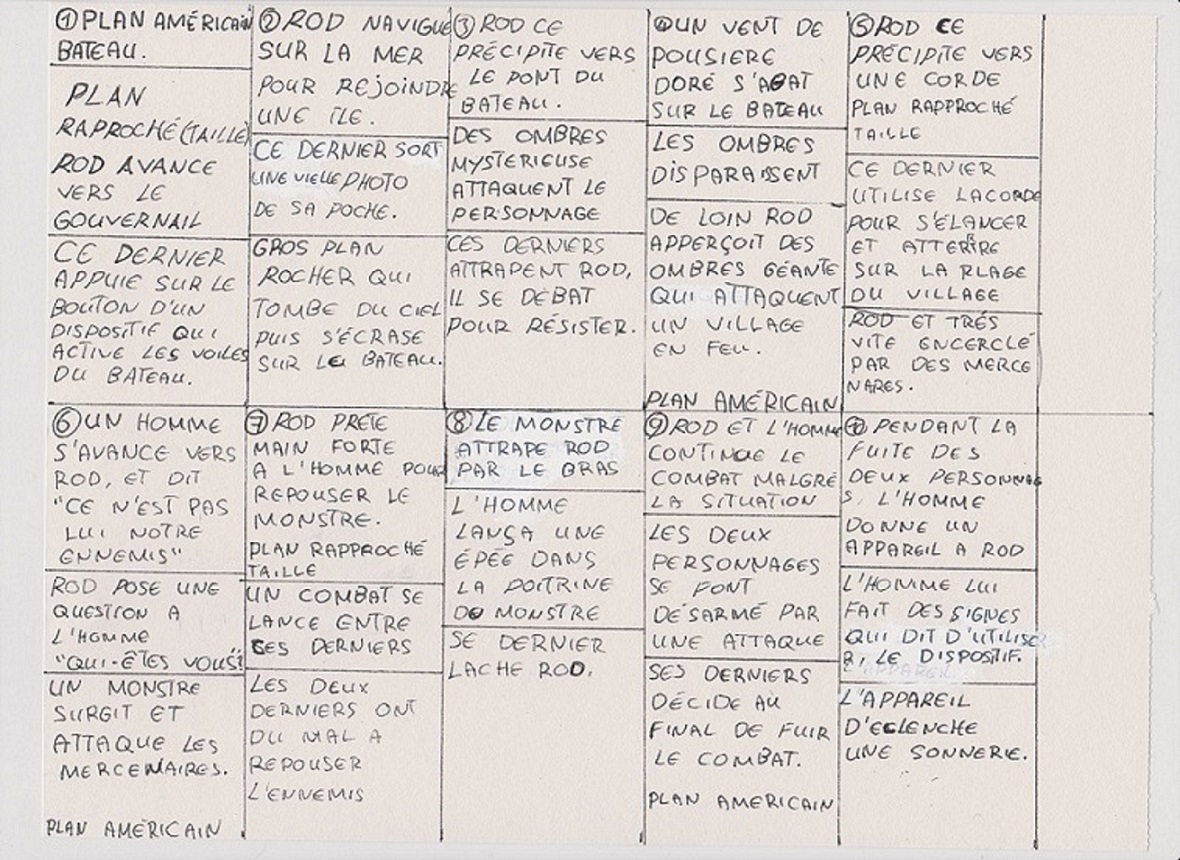 ①PLAN AMÉRICAIN
BATEAU.
PLAN
RAPROCHÉ(TAILLE)
ROD AVANCE
VERS LE
GOUVERNAIL
CE DERNIER
APPUIE SUR LE
BOUTON D'UN
DISPOSITIF QUI
ACTIVE LES VOILES
DU BATEAU.
②ROD NAVIGUE
SUR LA MER
POUR REJOINDRE
UNE ÎLE.
CE DERNIER SORT
UNE VIELLE PHOTO
DE SA POCHE.
GROS PLAN
ROCHER QUI
TOMBE DU CIEL
PUIS S'ÉCRASE
SUR LE BATEAU.
③ROD CE
PRÉCIPITE VERS
LE PONT DU
BATEAU.
DES OMBRES
MYSTERIEUSE
ATTAQUENT LE
PERSONNAGE
CES DERNIERS
ATTRAPENT ROD,
IL SE DÉBAT
POUR RÉSISTER.
④UN VENT DE
POUSIERE
DORÉ S'ABAT
SUR LE BATEAU
LES OMBRES
DISPARAISSENT
DE LOIN ROD
APPERÇOIT DES
OMBRES GÉANTE
QUI ATTAQUENT
UN VILLAGE
EN FEU.
PLAN AMÉRICAIN
⑤ROD CE
PRÉCIPITE VERS
UNE CORDE
PLAN RAPPROCHÉ
TAILLE
CE DERNIER
UTILISE LA CORDE
POUR S'ÉLANCER
ET ATTERRIRE
SUR LA PLAGE
DU VILLAGE
ROD ET TRÉS
VITE ENCERCLÉ
PAR DES MERCE
NARES.
⑥UN HOMME
S'AVANCE VERS
ROD, ET DIT
"CE N'EST PAS
LUI NOTRE
ENNEMIS"
ROD POSE UNE
QUESTION A
L'HOMME
"QUI-ÊTES VOUS?"
UN MONSTRE
SURGIT ET
ATTAQUE LES
MERCENAIRES.
PLAN AMÉRICAIN
⑦ROD PRETE
MAIN FORTE
A L'HOMME POUR
REPOUSER LE
MONSTRE.
PLAN RAPPROCHÉ
TAILLE
UN COMBAT SE
LANCE ENTRE
CES DERNIERS
LES DEUX
DERNIERS ONT
DU MAL A
REPOUSER
L'ENNEMIS
⑧LE MONSTRE
ATTRAPE ROD
PAR LE BRAS
L'HOMME
LANÇA UNE
ÉPÉE DANS
LA POITRINE
DU MONSTRE
SE DERNIER
LACHE ROD.
⑨ROD ET L'HOMME
CONTINUE LE
COMBAT MALGRÉ
LA SITUATION
LES DEUX
PERSONNAGES
SE FONT
DÉSARMÉ PAR
UNE ATTAQUE
SES DERNIERS
DÉCIDE AU
FINAL DE FUIR
LE COMBAT.
PLAN AMERICAIN
⑩PENDANT LA
FUITE DES
DEUX PERSONNAG
S, L'HOMME
DONNE UN
APPAREIL A ROD
L'HOMME LUI
FAIT DES SIGNES
QUI DIT D'UTILISE
R, LE DISPOSITIF.
L'APPAREIL
D'ECLENCHE
UNE SONNERIE.